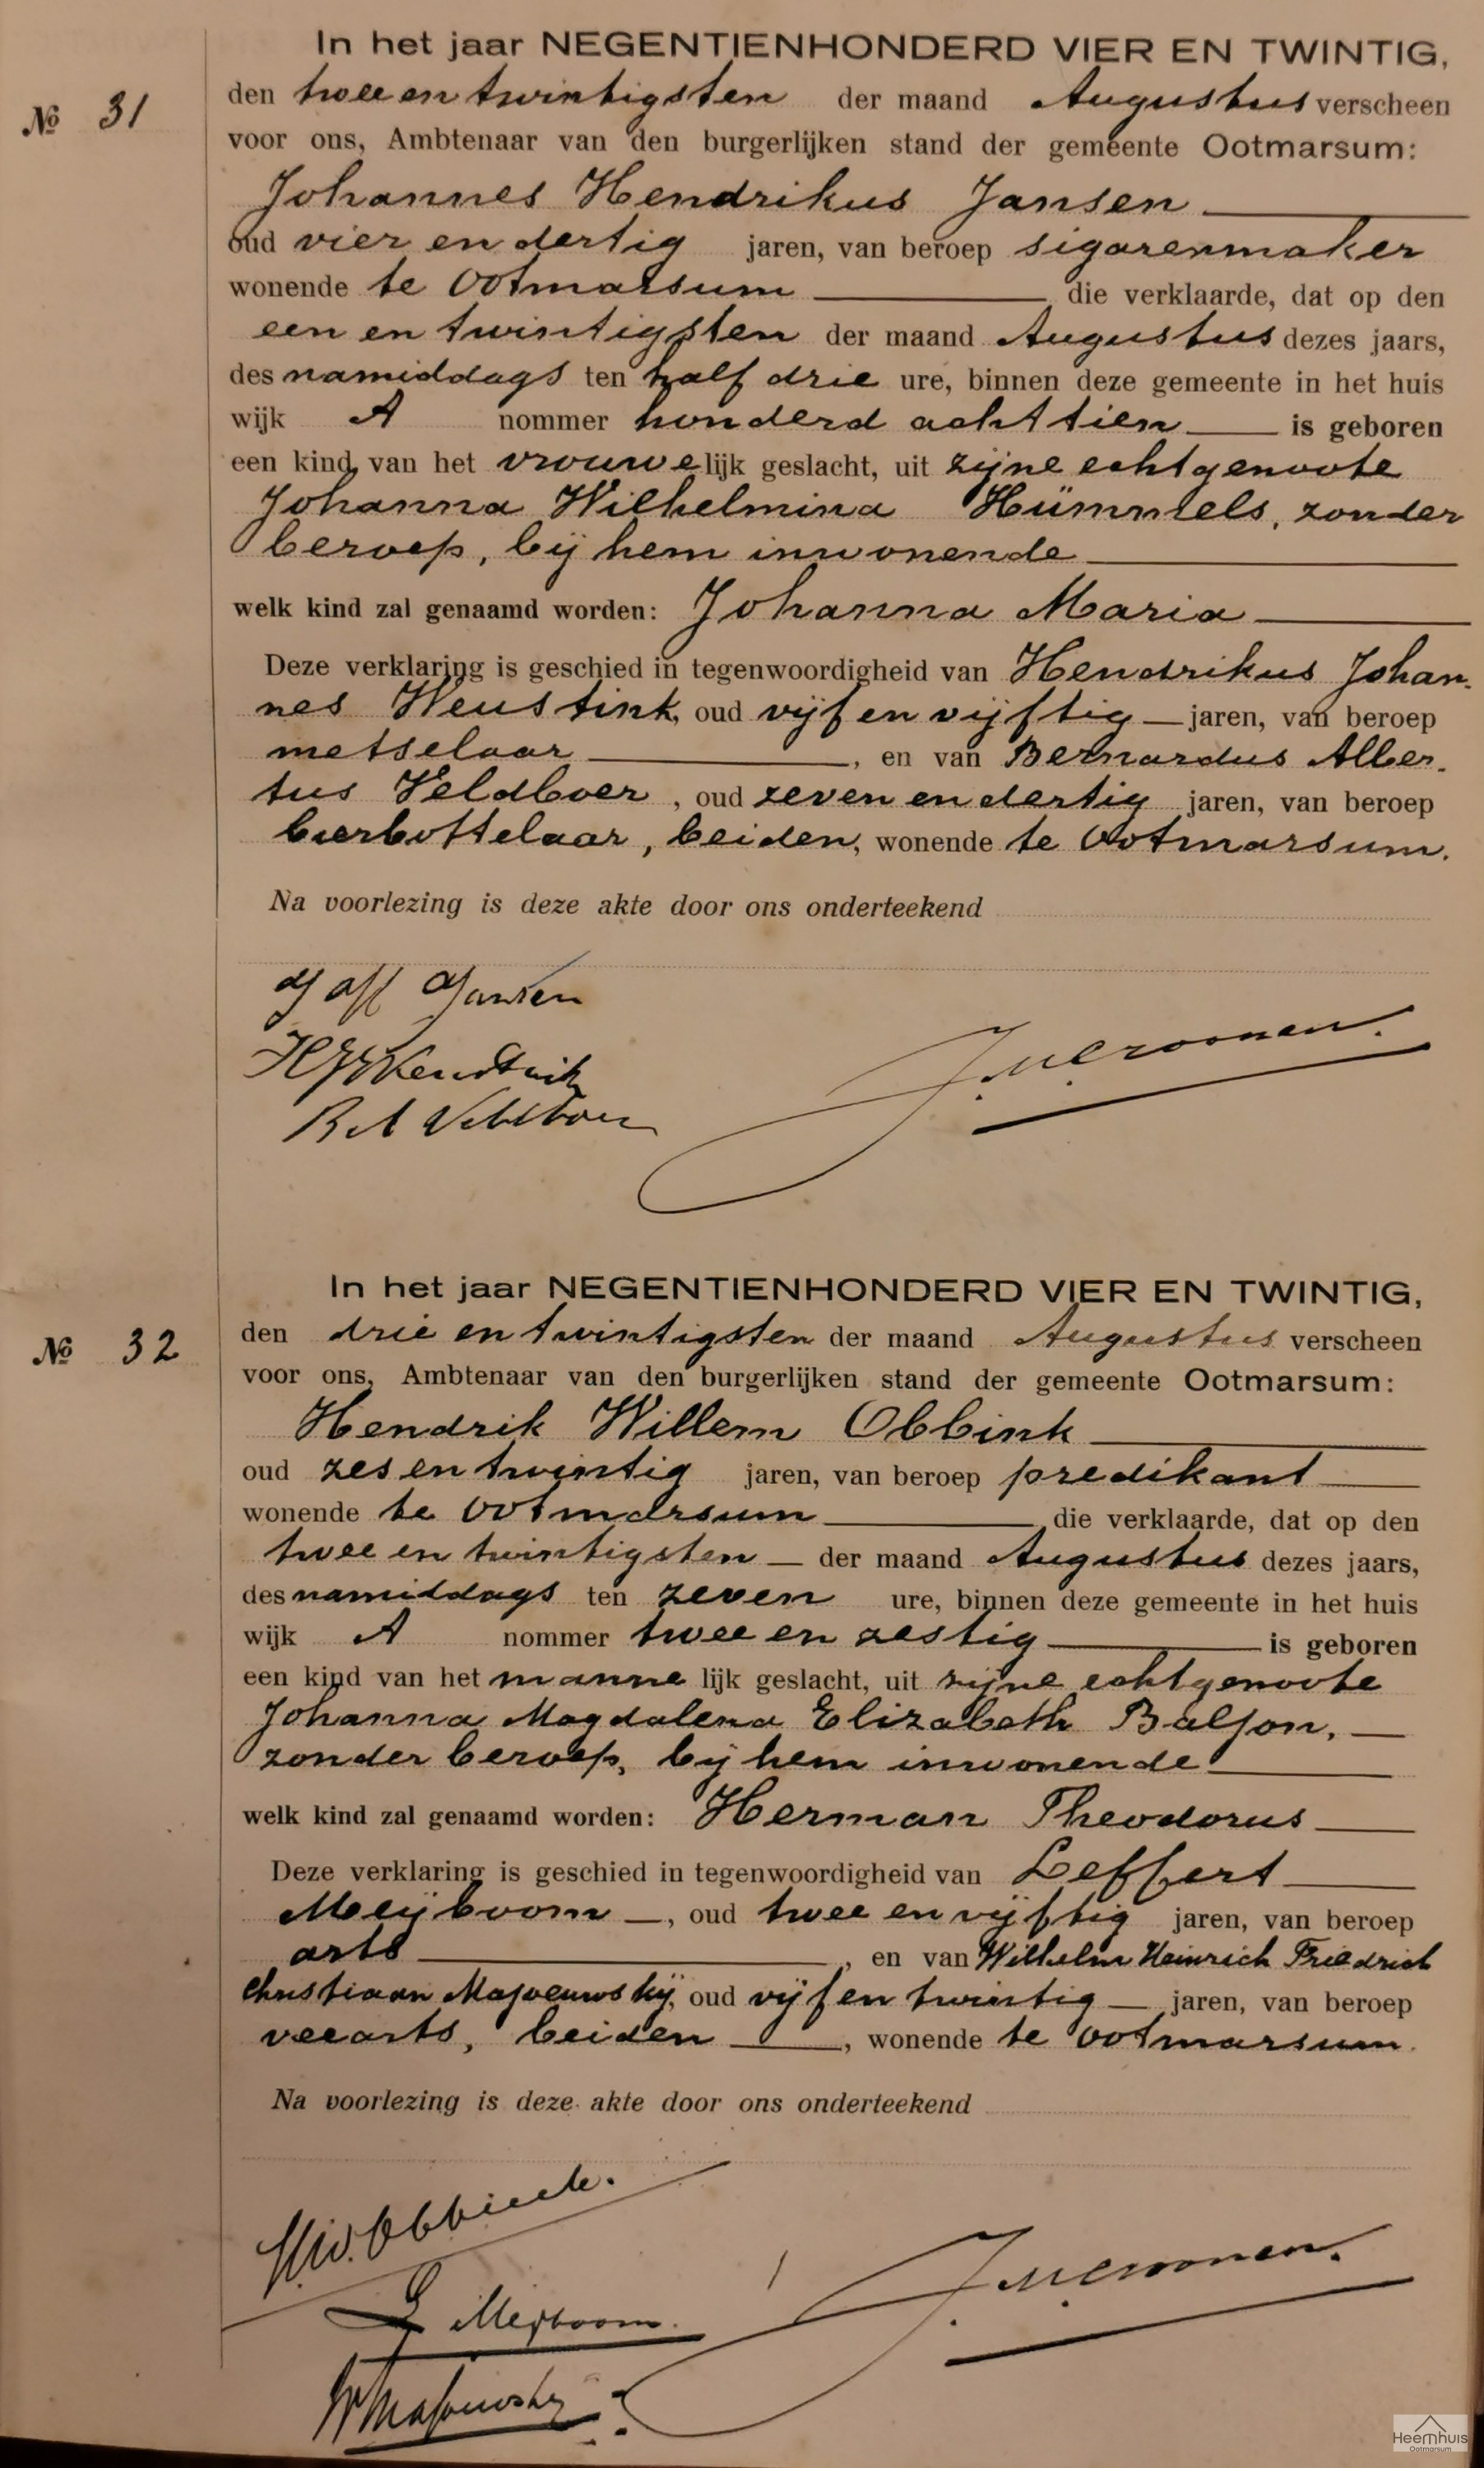 In het jaar NEGENTIENHONDERD VIER EN TWINTIG,
№ 31
den twee en twintigsten der maand Augustus verscheen
voor ons, Ambtenaar van den burgerlijken stand der gemeente Ootmarsum:
Johannes Hendrikus Jansen
oud vier en dertig jaren, van beroep sigarenmaker
wonende te Ootmarsum die verklaarde, dat op den
een en twintigsten der maand Augustus dezes jaars,
des namiddags ten half drie ure, binnen deze gemeente in het huis
wijk A nommer honderd achttien is geboren
een kind van het vrouwelijk geslacht, uit zijne echtgenoote
Johanna Wilhelmina Hümmels, zonder
beroep, bij hem inwonende
welk kind zal genaamd worden: Johanna Maria
Deze verklaring is geschied in tegenwoordigheid van Hendrikus Johan-
nes Weustink, oud vijf en vijftig jaren, van beroep
metselaar, en van Bernardus Alber-
tus Veldboer, oud zeven en dertig jaren, van beroep
bierbottelaar, beiden, wonende te Ootmarsum.
Na voorlezing is deze akte door ons onderteekend
Jansen
B A Veldboer
In het jaar NEGENTIENHONDERD VIER EN TWINTIG,
№ 32
den drie en twintigsten der maand Augustus verscheen
voor ons, Ambtenaar van den burgerlijken stand der gemeente Ootmarsum:
Hendrik Willem Obbink
oud zes en twintig jaren, van beroep predikant
wonende te Ootmarsum die verklaarde, dat op den
twee en twintigsten der maand Augustus dezes jaars,
des namiddags ten zeven ure, binnen deze gemeente in het huis
wijk A nommer twee en zestig is geboren
een kind van het mannelijk geslacht, uit zijne echtgenoote
Johanna Magdalena Elizabeth Baljon,
zonder beroep, bij hem inwonende
welk kind zal genaamd worden: Herman Theodorus
Deze verklaring is geschied in tegenwoordigheid van Leffert
Meijboom, oud twee en vijftig jaren, van beroep
arts, en van Wilhelm Heinrich Friedrich
Christiaan Majoewskij, oud vijf en twintig jaren, van beroep
veearts, beiden, wonende te Ootmarsum.
Na voorlezing is deze akte door ons onderteekend
H.W. Obbink.
L Meijboom.
Heemhuis
Ootmarsum